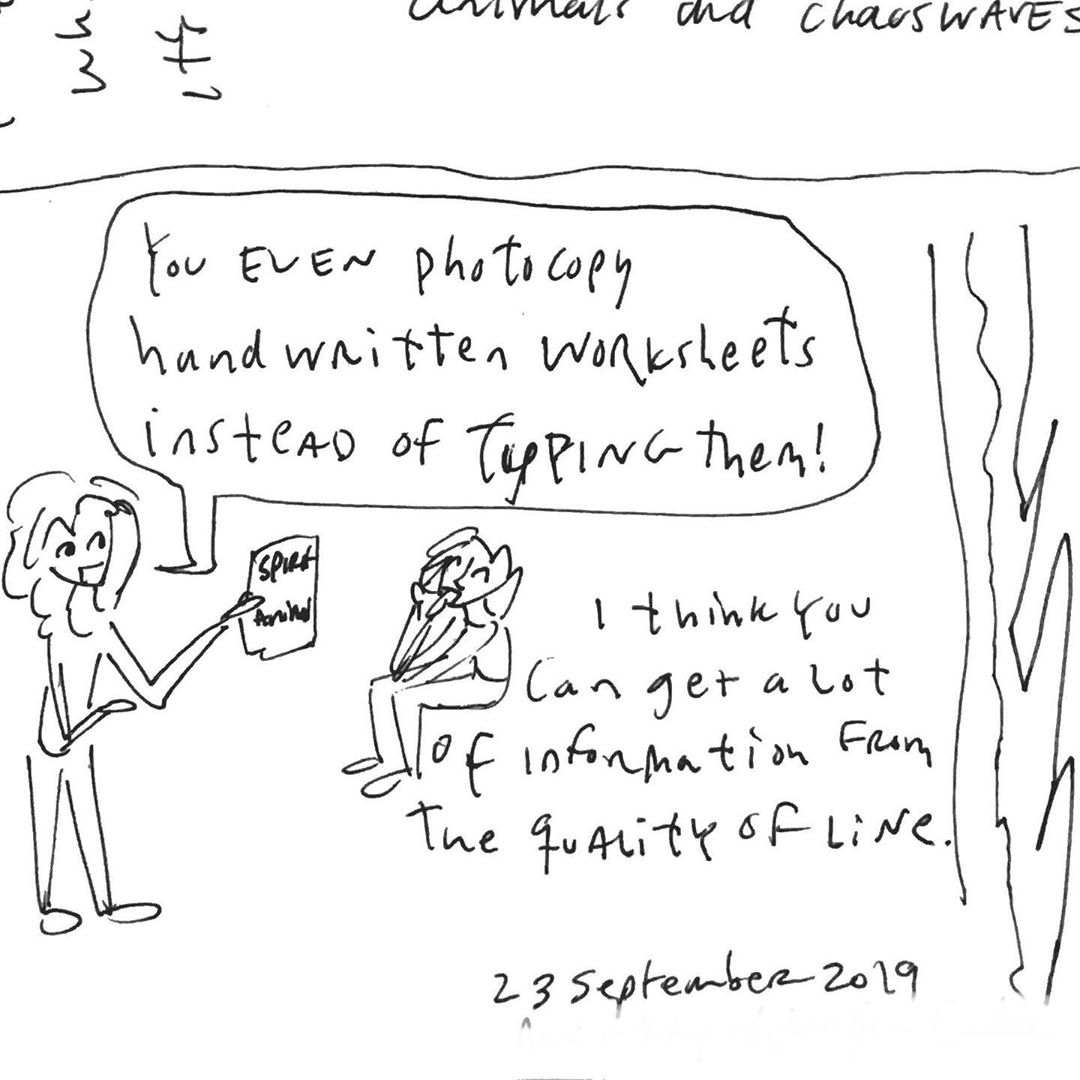 animals and chaoswAvES
You EVEN photocopy
handwritten worksheets
instEAD of TypPING them!
SPIRit
Animal
I think You
Can get a lot
of information From
The quALity of LiNe.
23 September 2019